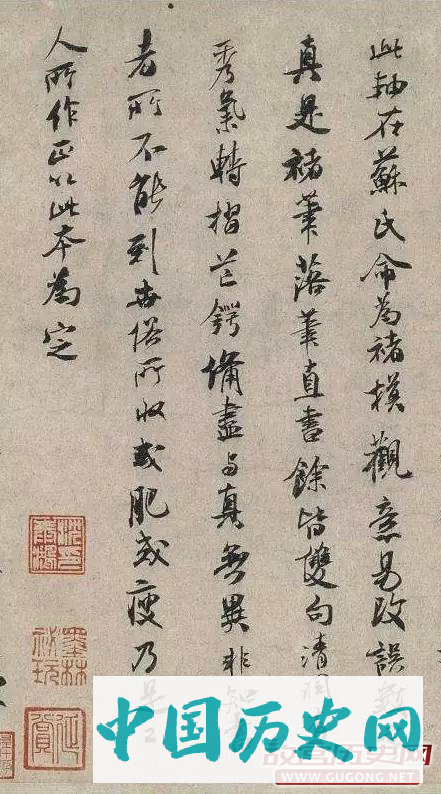 此軸在蘇氏命為褚模觀意易改誤數
真是褚筆落筆直書餘皆雙勾清潤
秀氣轉摺芒鍔備盡与真無異非知書
者所不能到世俗所收或肥或瘦乃是工
人所作正以此本為定
墨林
祕玩
中国历史网
WWW.GUGONG.NET